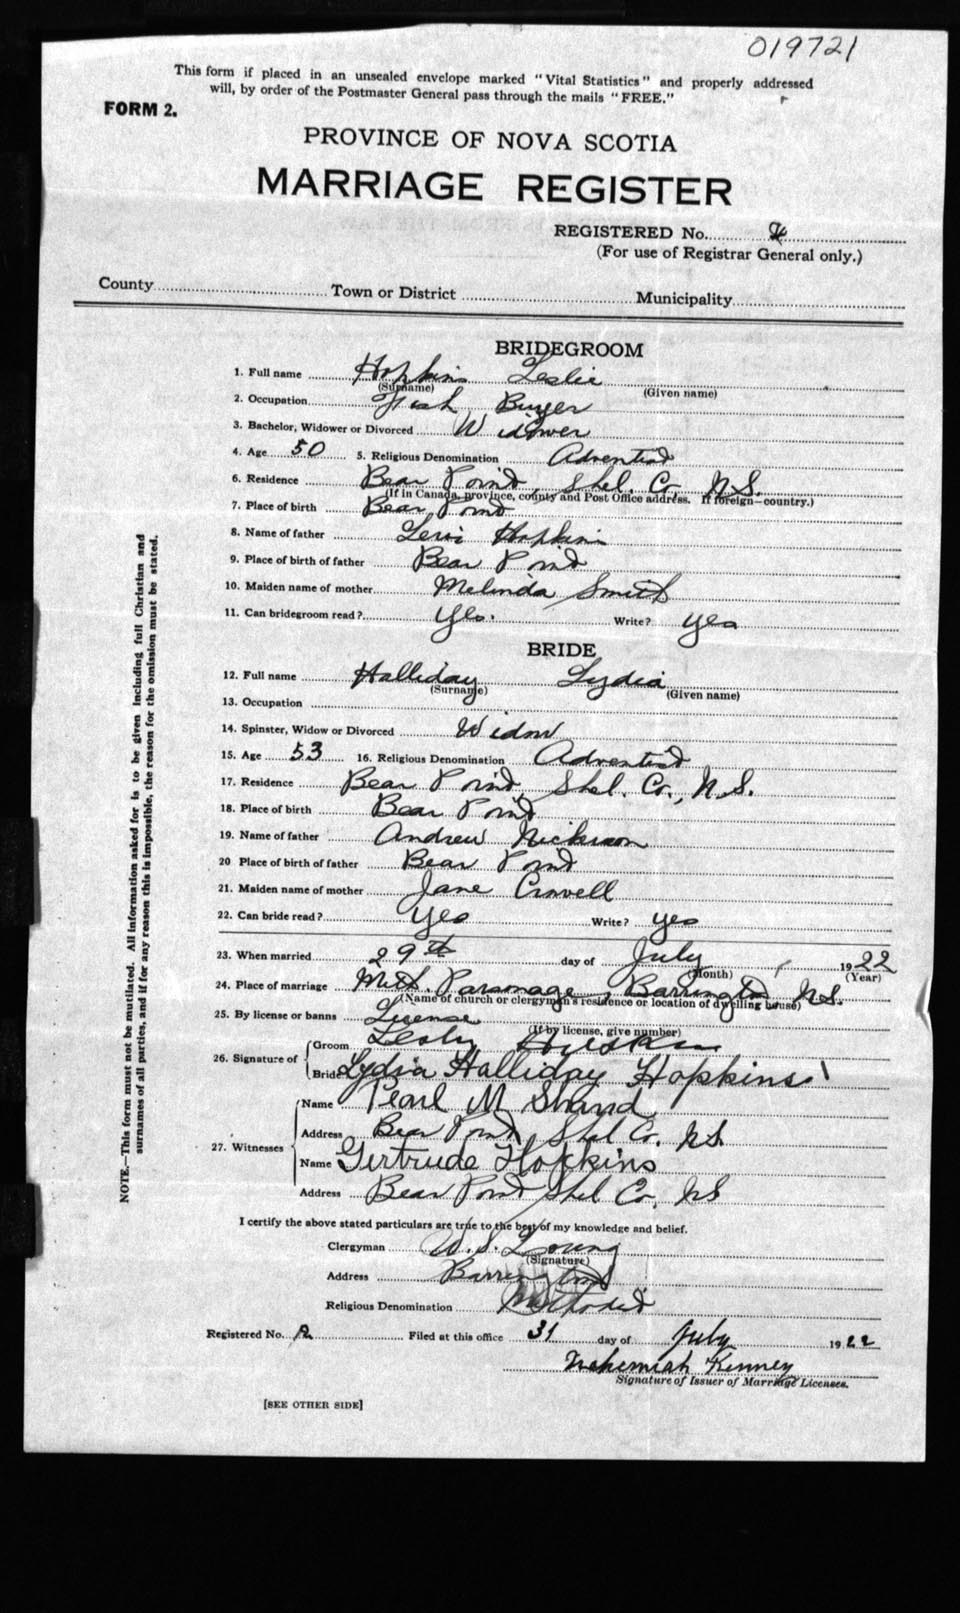 019721
This form if placed in an unsealed envelope marked "Vital Statistics" and properly addressed
will, by order of the Postmaster General pass through the mails "FREE."
FORM 2.
PROVINCE OF NOVA SCOTIA
MARRIAGE REGISTER
REGISTERED No.
(For use of Registrar General only.)
County Town or District Municipality
BRIDEGROOM
1. Full name Hopkins Leslie
(Surname) (Given name)
2. Occupation Fish Buyer
3. Bachelor, Widower or Divorced Widower
4. Age 50 5. Religious Denomination Adventist
6. Residence Bear Point, Shel. Co. N.S.
(If in Canada, province, county and Post Office address. If foreign—country.)
7. Place of birth Bear Point
8. Name of father Levi Hopkins
9. Place of birth of father Bear Point
10. Maiden name of mother Melinda Smith
11. Can bridegroom read? Yes. Write? yes
BRIDE
12. Full name Halliday Lydia
(Surname) (Given name)
13. Occupation
14. Spinster, Widow or Divorced Widow
15. Age 53 16. Religious Denomination Adventist
17. Residence Bear Point, Shel. Co., N.S.
18. Place of birth Bear Point
19. Name of father Andrew Nickerson
20 Place of birth of father Bear Point
21. Maiden name of mother Jane Crowell
22. Can bride read? Yes Write? yes
23. When married 29th day of July 1922
(Month) (Year)
24. Place of marriage Meth. Parsonage, Barrington N.S.
(Name of church or clergyman's residence or location of dwelling house)
25. By license or banns License
(If by license, give number)
26. Signature of Groom Lesly Hopkins
Bride Lydia Halliday Hopkins
27. Witnesses Name Pearl M Shand
Address Bear Point, Shel Co. NS.
Name Gertrude Hopkins
Address Bear Point Shel Co, NS
I certify the above stated particulars are true to the best of my knowledge and belief.
Clergyman W. S. Young
(Signature)
Address Barrington
Religious Denomination Methodist
Registered No. 2 Filed at this office 31 day of July 1922
Nehemiah Kenney
Signature of Issuer of Marriage Licenses.
[SEE OTHER SIDE]
NOTE.—This form must not be mutilated. All information asked for is to be given including full Christian and
surnames of all parties, and if for any reason this is impossible, the reason for the omission must be stated.